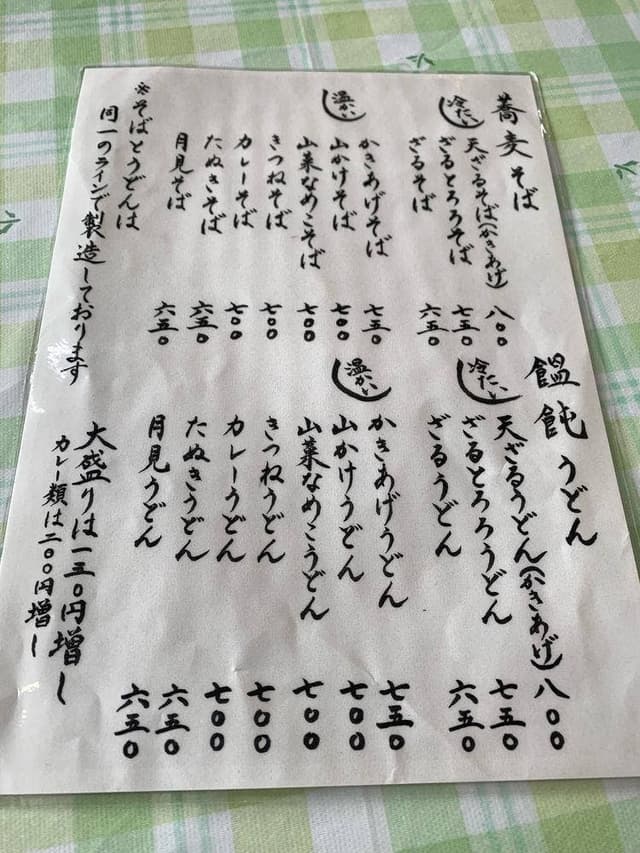 蕎麦そば
冷たい
天ざるそば(かきあげ) 八〇〇
ざるとろろそば 七五〇
ざるそば 六五〇
温かい
かきあげそば 七五〇
山かけそば 七〇〇
山菜なめこそば 七〇〇
きつねそば 七〇〇
カレーそば 七〇〇
たぬきそば 六五〇
月見そば 六五〇
※そばとうどんは
同一のラインで製造しております
饂飩うどん
冷たい
天ざるうどん(かきあげ) 八〇〇
ざるとろろうどん 七五〇
ざるうどん 六五〇
温かい
かきあげうどん 七五〇
山かけうどん 七〇〇
山菜なめこうどん 七〇〇
きつねうどん 七〇〇
カレーうどん 七〇〇
たぬきうどん 六五〇
月見うどん 六五〇
大盛りは一五〇円増し
カレー類は二〇〇円増し